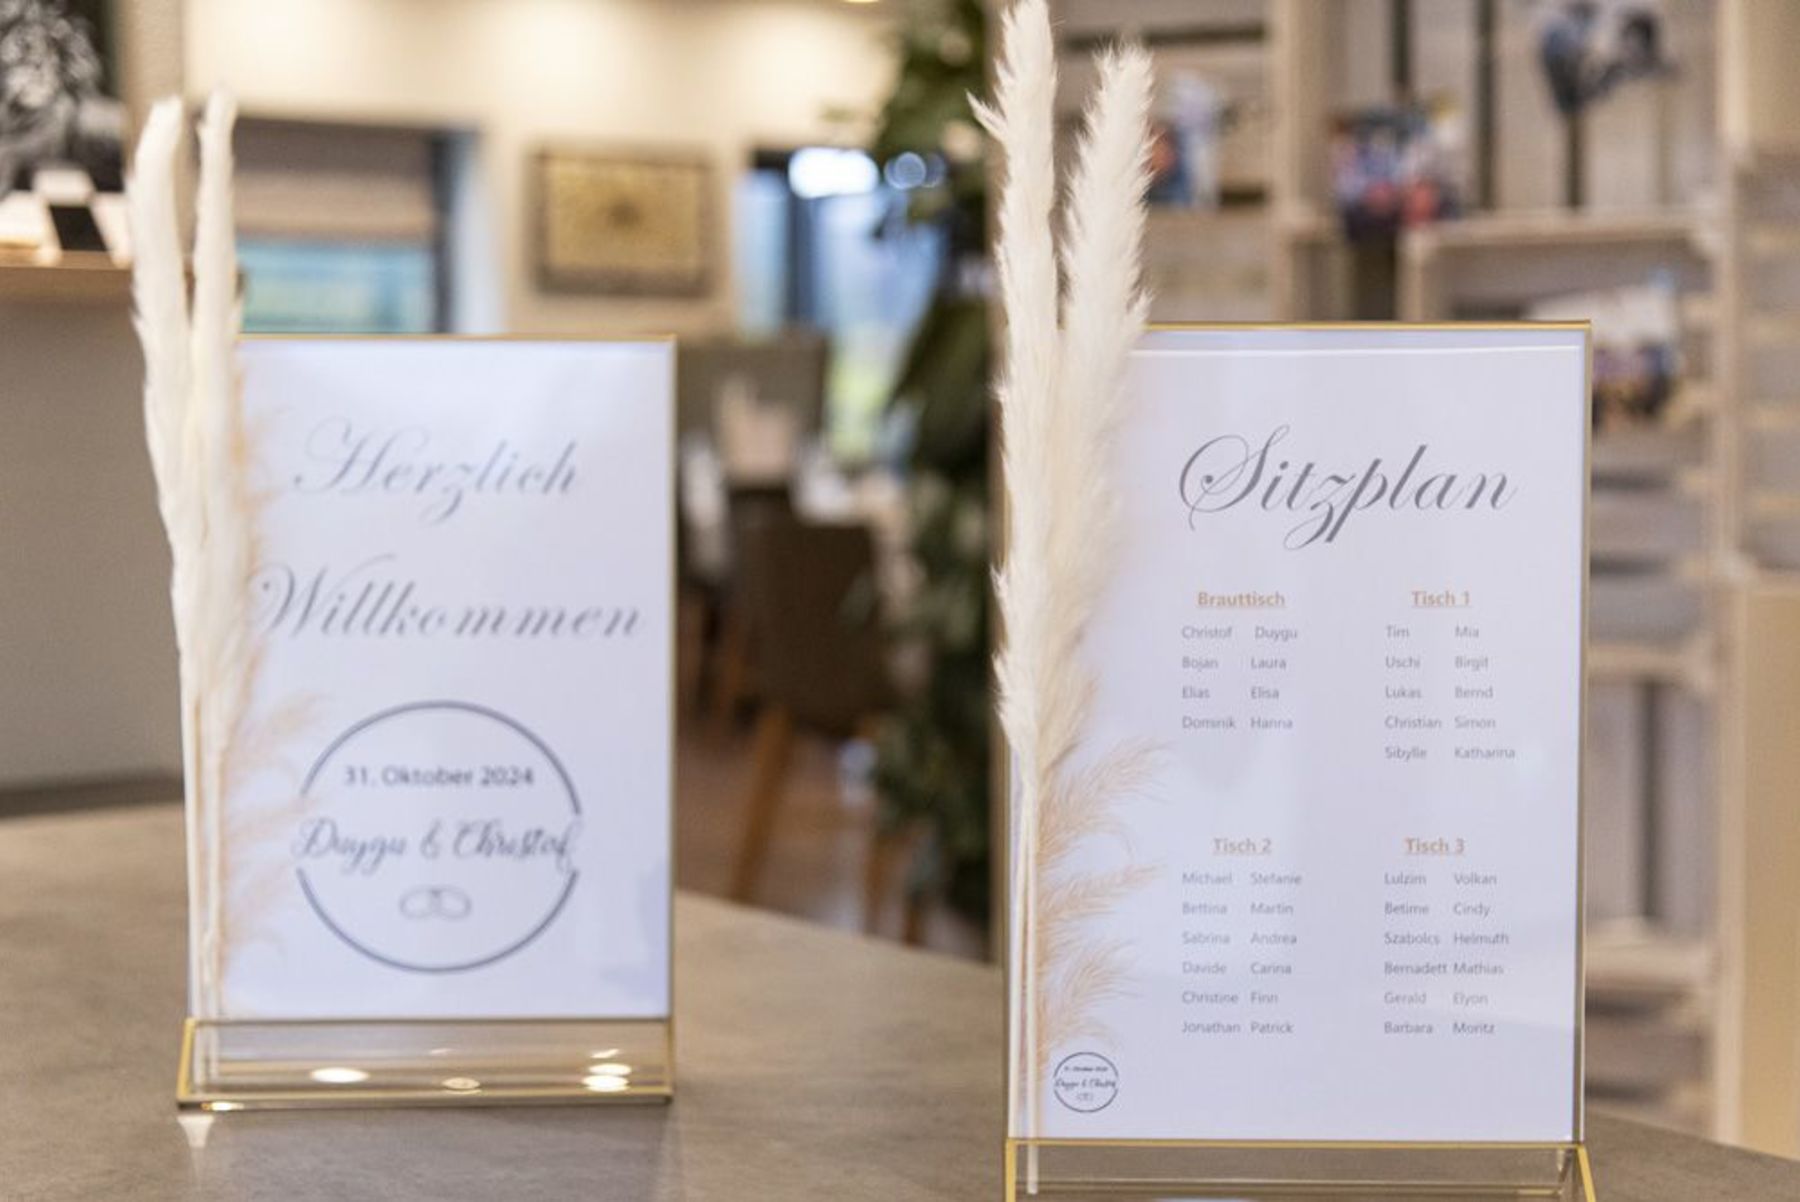 Herzlich
Willkommen
31. Oktober 2024
Duygu & Christof
Sitzplan
Brauttisch
Christof Duygu
Bojan Laura
Elias Elisa
Dominik Hanna
Tisch 1
Tim Mia
Uschi Birgit
Lukas Bernd
Christian Simon
Sibylle Katharina
Tisch 2
Michael Stefanie
Bettina Martin
Sabrina Andrea
Davide Carina
Christine Finn
Jonathan Patrick
Tisch 3
Lulzim Volkan
Betime Cindy
Szabolcs Helmuth
Bernadett Mathias
Gerald Elyon
Barbara Moritz
31. Oktober 2024
Duygu & Christof